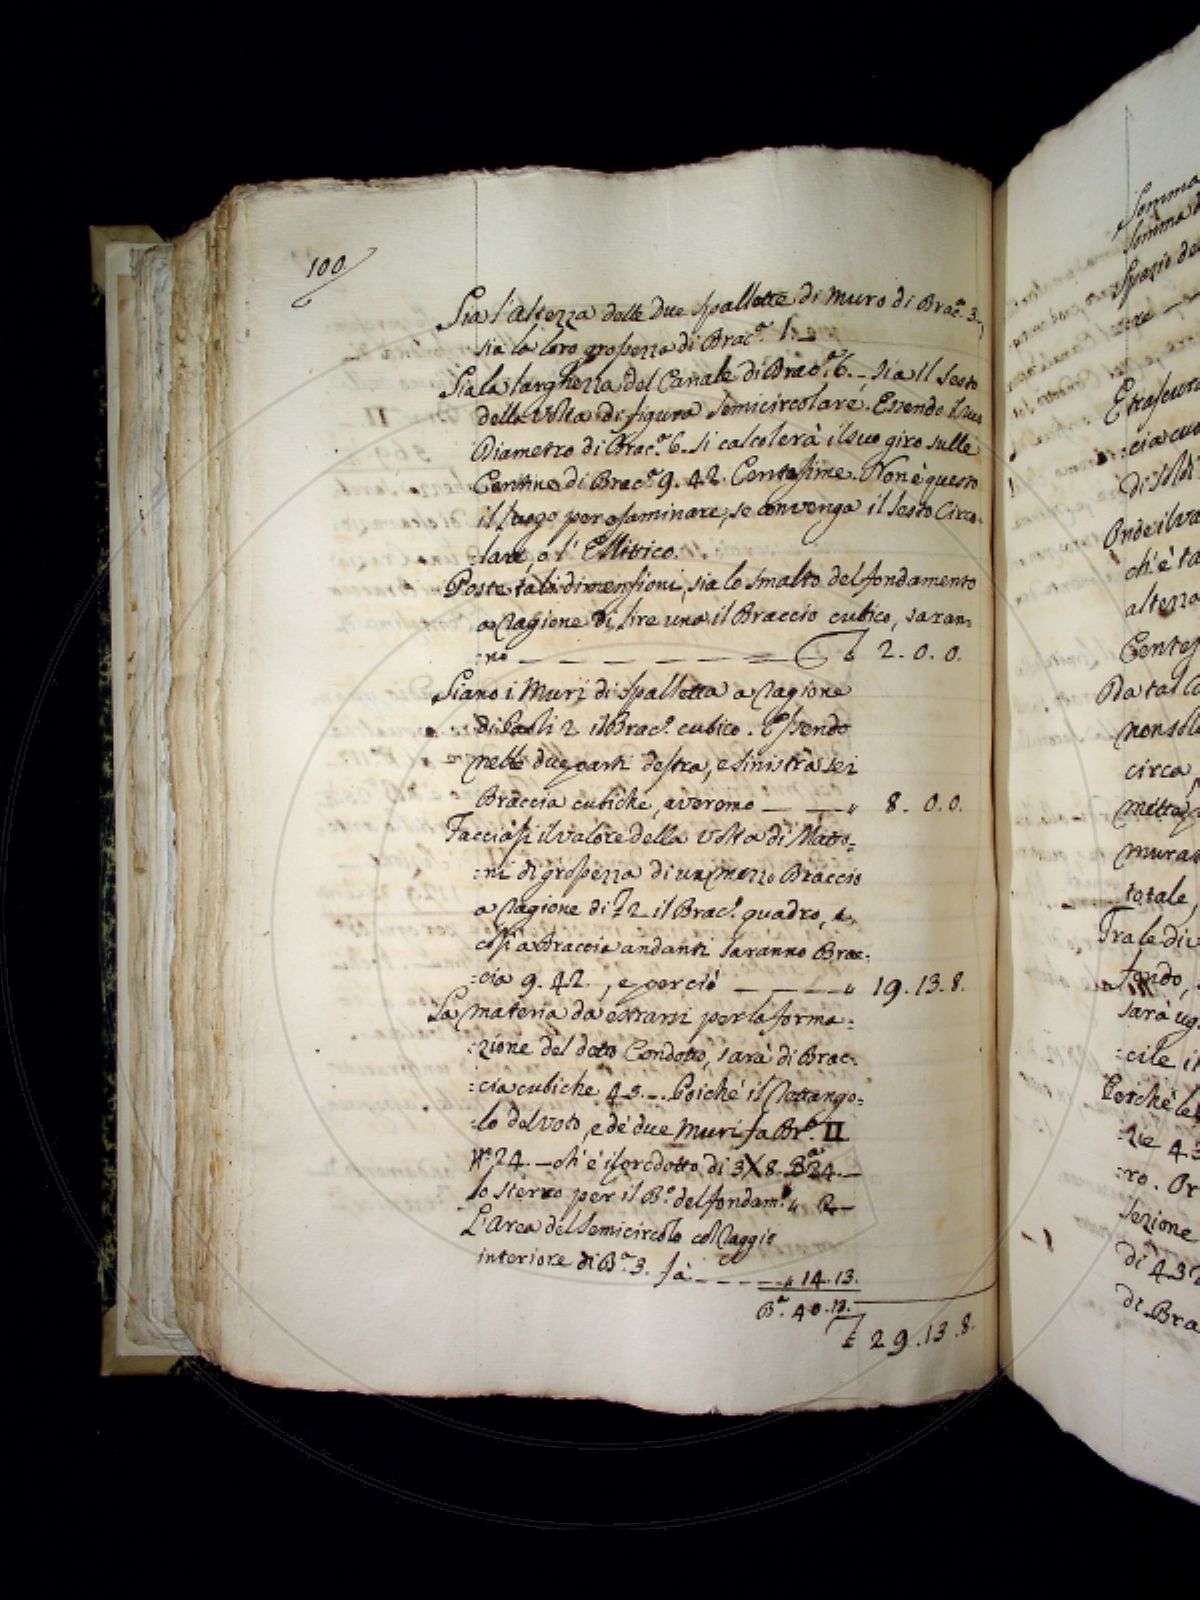 100.
Sia l'Altezza delle due spallette di muro di Brac.ª 3.–,
sia la loro grossezza di Brac.ª 1.–
Sia la larghezza del Canale di Brac.ª 6.– sia il sesto
della volta di figura semicircolare. Essendo il suo
Diametro di Brac.ª 6. si calcolerà il suo giro sulle
Centine di Brac.ª 9. 42. Centesime. Non è questo
il luogo per esaminare, se convenga il sesto Circo-
:lare, o l'Ellitico.
Poste tali dimensioni, sia lo smalto del fondamento
a ragione di lire una il Braccio cubico, saran:
:no — — — — — — £ 2. 0. 0.
Siano i Muri di spalletta a ragione
di Paoli 2 il Brac.º cubico. Essendo
nelle due parti destra, e sinistra sei
Braccia cubiche, averemo — — " 8. 0. 0.
Facciasi il valore della volta di Matto:
:ni di grossezza di un mezzo Braccio
a ragione di £ 2 il Brac.º quadro, e
così a Braccia andanti saranno Brac:
:cia 9. 42., e perciò — — — " 19. 13. 8.
La materia da estrarsi per la forma:
:zione del detto Condotto, sarà di Brac:
:cia cubiche 43.–. Poiché il Rettango:
:lo del voto, e de' due Muri fa Br.ª
24.– ch'è il prodotto di 3X8. Bª 24.–
lo sterro per il B.º del fondam.º " 2–
L'Area del semicircolo col Raggio
interiore di B.ª 3. fà – – – – " 14. 13.
B.ª 40. 13.
£ 29. 13. 8.
Somma
Somma d
Spazio de
Etrascura
:cia cu
di soldi
Onde il va
ch'è ta
altezza
Centes
Da tal
non sol
circa,
mura
totale,
Frale di
fondo,
sarà ug
:cile i
Perché le
:zie 43
:ro. Or
sezione
di 43
di Bra